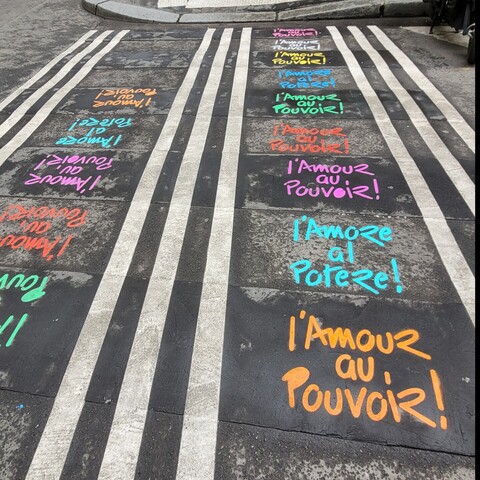 l'Amour
au
Pouvoir!
l'Amour
au
Pouvoir!
l'Amour
au
Pouvoir!
l'Amore
al
Potere!
l'Amour
au
Pouvoir!
l'Amour
au
Pouvoir!
l'Amour
au
Pouvoir!
l'Amore
al
Potere!
l'Amour
au
Pouvoir!
l'Amour
au
Pouvoir!
l'Amore
al
Potere!
l'Amour
au
Pouvoir!
l'Amour
au
Pouvoir!